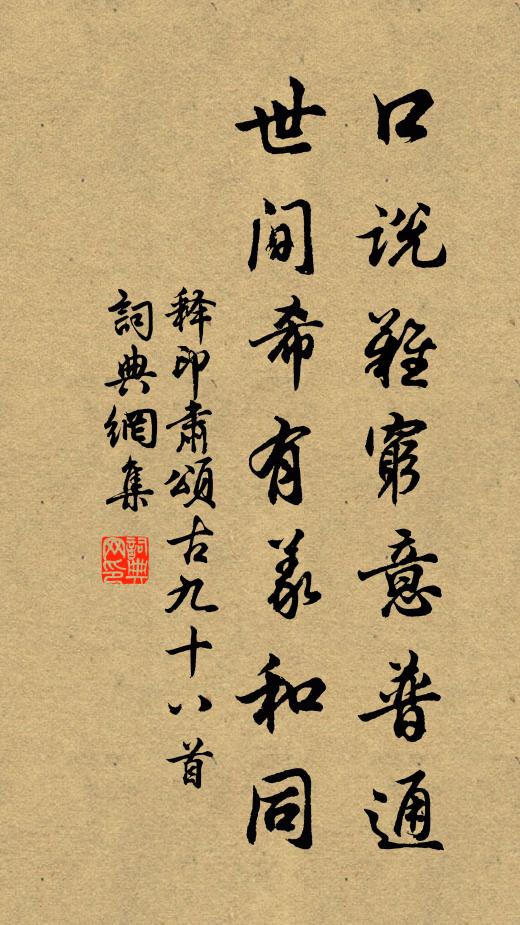 口说難窮意普通
世间希有義和同
释印肅頌古九十八首
詞典網集
詞典
网印